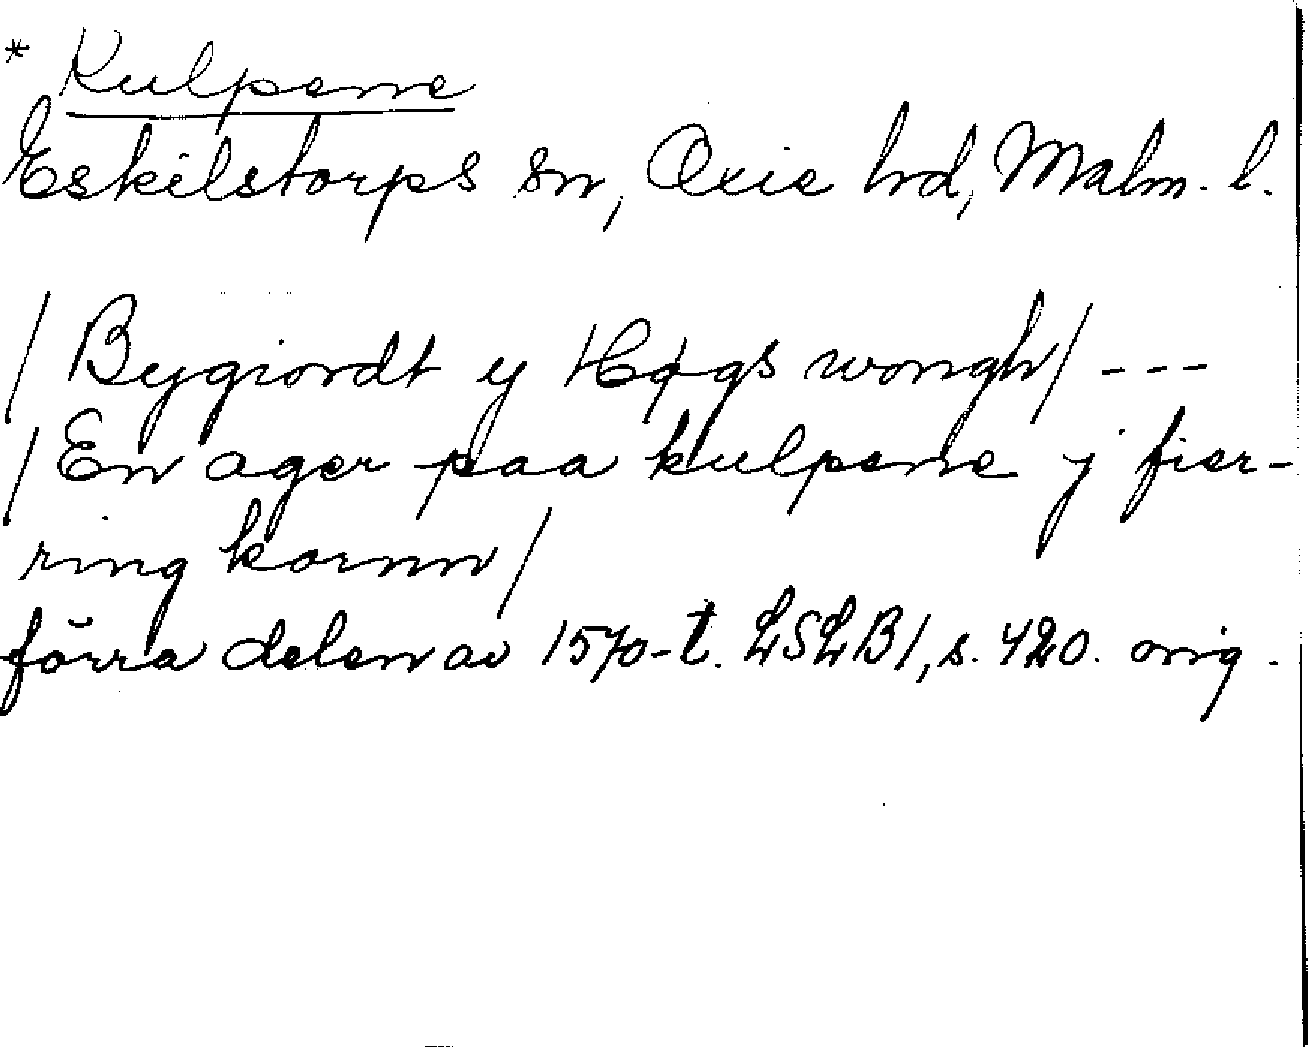 * Kulpene
Eskilstorps sn, Oxie hd, Malm. l.
/ Bygiordt y Høgs wongh / ---
/ En ager paa kulpene j fier-
ring kornn /
förra delen av 1570-t. LSLB 1, s. 420. orig.